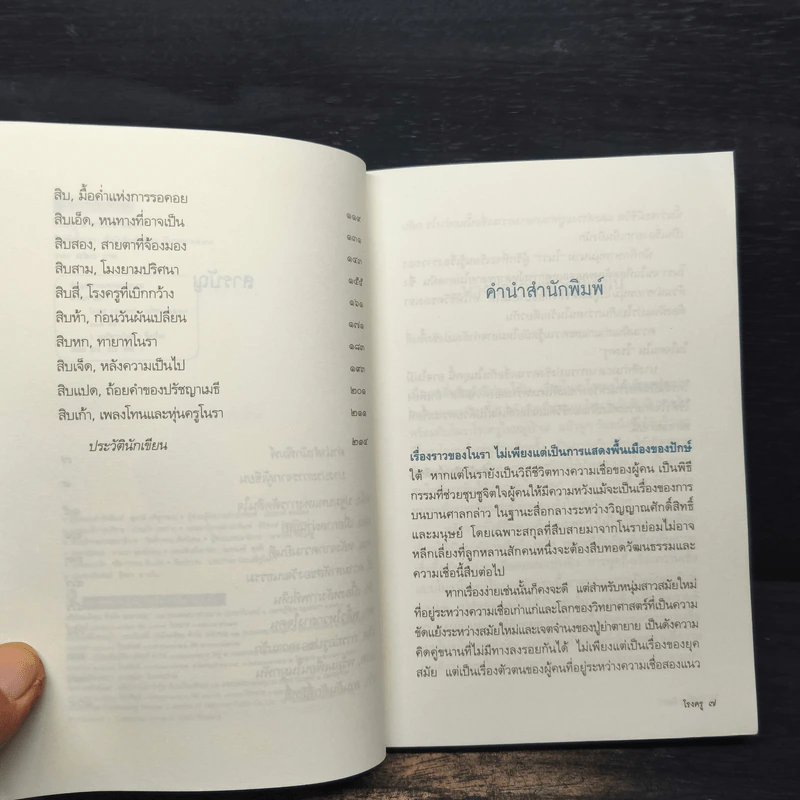 สิบ, มื้อค่ำแห่งการรอคอย ๑๑๙
สิบเอ็ด, หนทางที่อาจเป็น ๑๓๑
สิบสอง, สายตาที่จ้องมอง ๑๔๓
สิบสาม, โมงยามปริศนา ๑๕๕
สิบสี่, โรงครูที่เบิกกว้าง ๑๖๑
สิบห้า, ก่อนวันผันเปลี่ยน ๑๗๑
สิบหก, ทายาทโนรา ๑๘๓
สิบเจ็ด, หลังความเป็นไป ๑๙๓
สิบแปด, ถ้อยคำของปรัชญาเมธี ๒๐๑
สิบเก้า, เพลงโทนและหุ่นครูโนรา ๒๑๑
ประวัตินักเขียน ๒๑๔
คำนำสำนักพิมพ์
เรื่องราวของโนรา ไม่เพียงแต่เป็นการแสดงพื้นเมืองของปักษ์
ใต้ หากแต่โนรายังเป็นวิถีชีวิตทางความเชื่อของผู้คน เป็นพิธี
กรรมที่ช่วยชุบชูจิตใจผู้คนให้มีความหวังแม้จะเป็นเรื่องของการ
บนบานศาลกล่าว ในฐานะสื่อกลางระหว่างวิญญาณศักดิ์สิทธิ์
และมนุษย์ โดยเฉพาะสกุลที่สืบสายมาจากโนราย่อมไม่อาจ
หลีกเลี่ยงที่ลูกหลานสักคนหนึ่งจะต้องสืบทอดวัฒนธรรมและ
ความเชื่อนี้สืบต่อไป
หากเรื่องง่ายเช่นนั้นก็คงจะดี แต่สำหรับหนุ่มสาวสมัยใหม่
ที่อยู่ระหว่างความเชื่อเก่าแก่และโลกของวิทยาศาสตร์ที่เป็นความ
ขัดแย้งระหว่างสมัยใหม่และเจตจำนงของปู่ย่าตายาย เป็นดังความ
คิดคู่ขนานที่ไม่มีทางลงรอยกันได้ ไม่เพียงแต่เป็นเรื่องของยุค
สมัย แต่เป็นเรื่องตัวตนของผู้คนที่อยู่ระหว่างความเชื่อสองแนว
โรงครู ๗